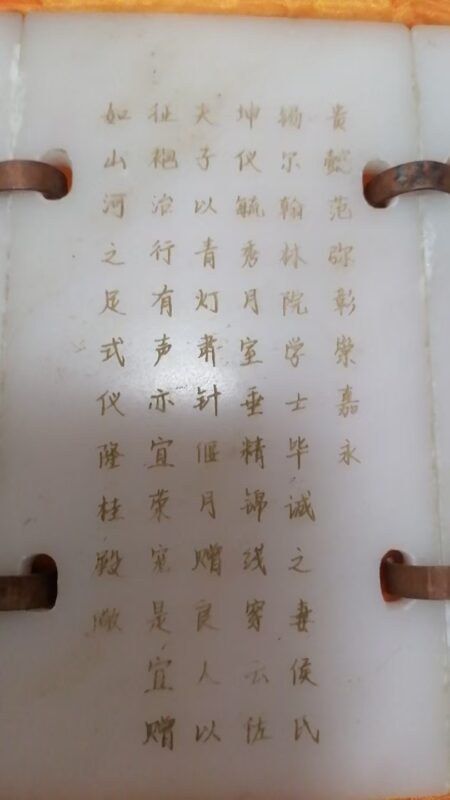 贵懿范弥彰荣嘉永
锡尔翰林院学士毕诚之妻侯氏
坤仪毓秀月室垂精锦线云佐
夫子以青灯肃针偃月赠良人以
征袍治行有声亦宜荣宠是宜赠
如山河之足式仪隆桂殿